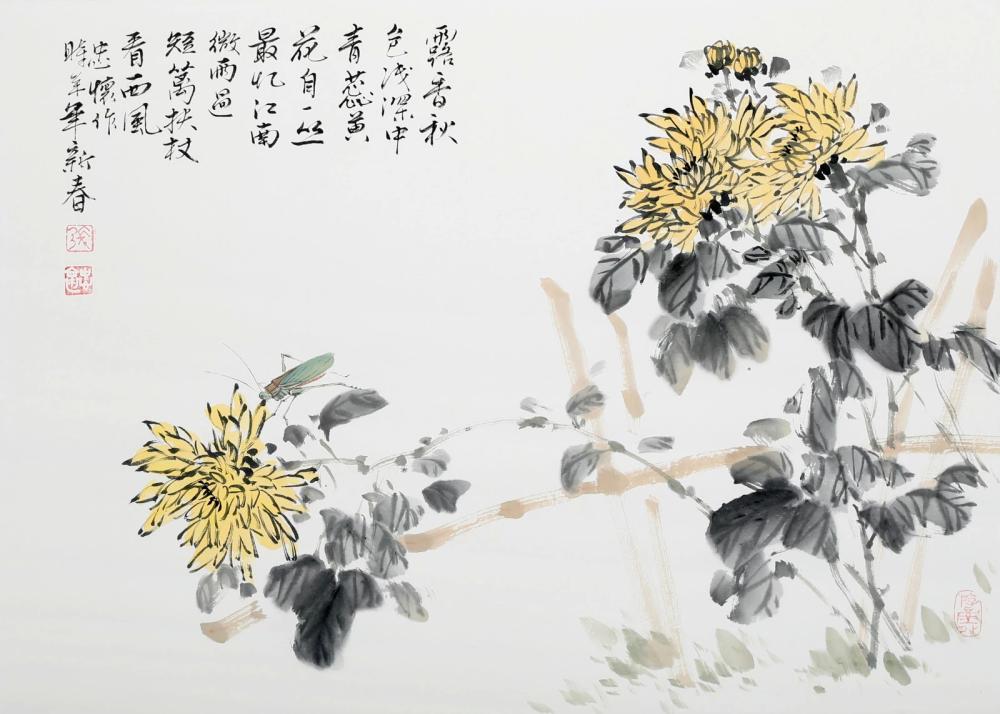 露香秋
色浅深中
青蕊黄
花自一丛
最忆江南
微雨过
短篱扶杖
看西风
時羊年新春
忠懷作